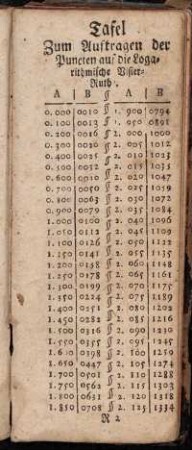 Tafel
Zum Auftragen der
Puncten auf die Loga-
rithmische Visier-
Ruth.
A B § A B
0. 000 0010 § 1. 900 0794
0. 100 0013 § 1. 950 0891
0. 200 0016 § 2. 000 1000
0. 300 0020 § 2. 005 1012
0. 400 0025 § 2. 010 1023
0. 500 0032 § 2. 015 1035
0. 600 0040 § 2. 020 1047
0. 700 0050 § 2. 025 1059
0. 800 0063 § 2. 030 1072
0. 900 0079 § 2. 035 1084
1. 000 0100 § 2. 040 1096
1. 050 0112 § 2. 045 1109
1. 100 0126 § 2. 050 1122
1. 250 0141 § 2. 055 1135
1. 200 0158 § 2. 060 1148
1. 250 0178 § 2. 065 1161
1. 300 0199 § 2. 070 1175
1. 350 0224 § 2. 075 1189
1. 400 0251 § 2. 080 1202
1. 450 0282 § 2. 085 1216
1. 500 0316 § 2. 090 1230
1. 550 0355 § 2. 095 1245
1. 600 0398 § 2. 100 1259
1. 650 0447 § 2. 105 1274
1. 700 0501 § 2. 110 1288
1. 750 0562 § 2. 115 1303
1. 800 0631 § 2. 120 1318
1. 850 0708 § 2. 125 1334
R 2